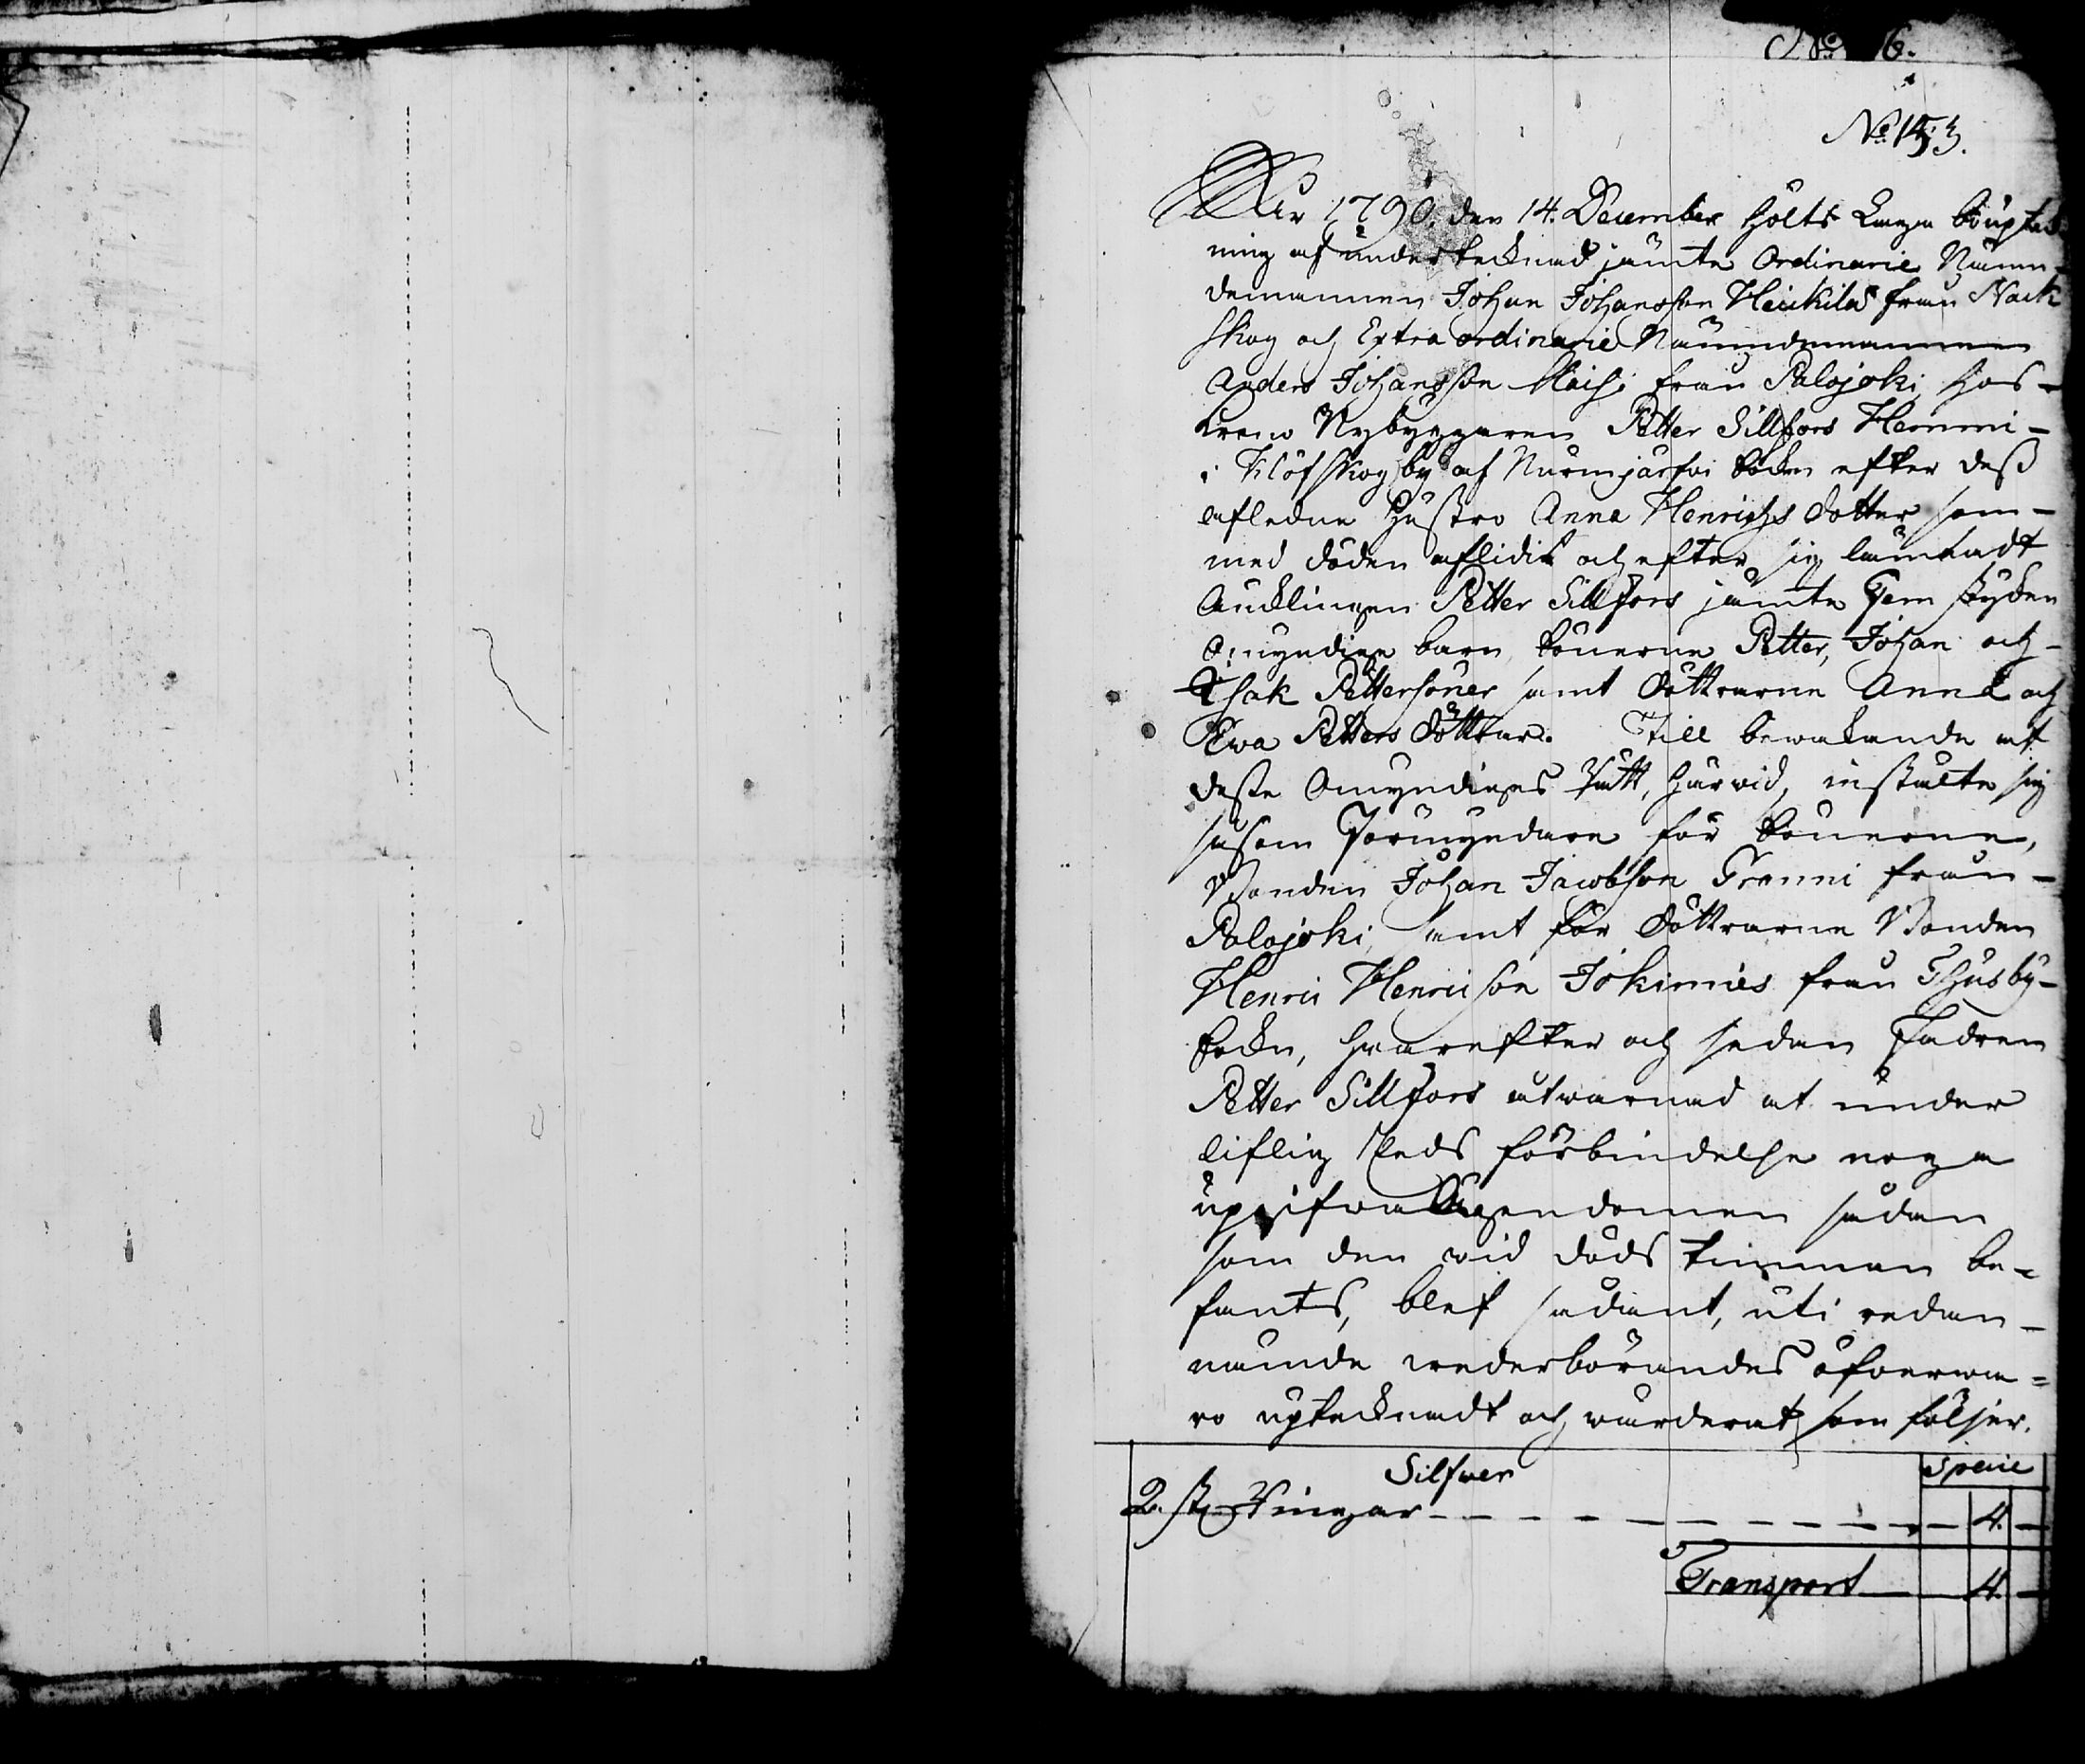 No 6.
No 153.
År 1790. den 14. December hölts Laga Bouptek
ning af undertecknad jämte Ordinarie Nämn-
demannen Johan Johansson Heikilä från Nack
skog och Extra ordinarie Nämndemannen
Anders Johansson från Palojoki, hos-
Krono Nybyggaren Petter Sillfors Hemmi-
i Klöfskog by af Nurmijärfvi Sockn efter dess
aflidne Hustro Anna Henrichs dotter som-
med döden aflidit och efter sig lämnadt
Änklingen Petter Sillfors jämte Fem stycken
Omyndige barn, Sönerne Petter, Johan och-
Isak Pettersöner samt Döttrarne Anna och
Ewa Petters Döttrar. Till bewakande af
desse Omyndiges Rätt, härwid, instälte sig
såsom Förmyndare för Sönerne,
Bonden Johan Jacobson Franni från-
Palojoki, samt för Döttrarne Bonden
Henric Henricson Jokimies från Thusby-
Sockn, hvarefter och sedan Fadren
Petter Sillfors åtwarnad at under
liflig Eeds förbindelse noga
upgifwa Ägendomen sådan
som den wid döds timman be-
fants, blef sådant, uti redan-
nämnde wederbörandes öfwerwa-
ro uptecknadt och wärderat som följer.
Silfwer
Specie
2. st. Ringar - - - - - - - - - - 4. -
Transport 4. -